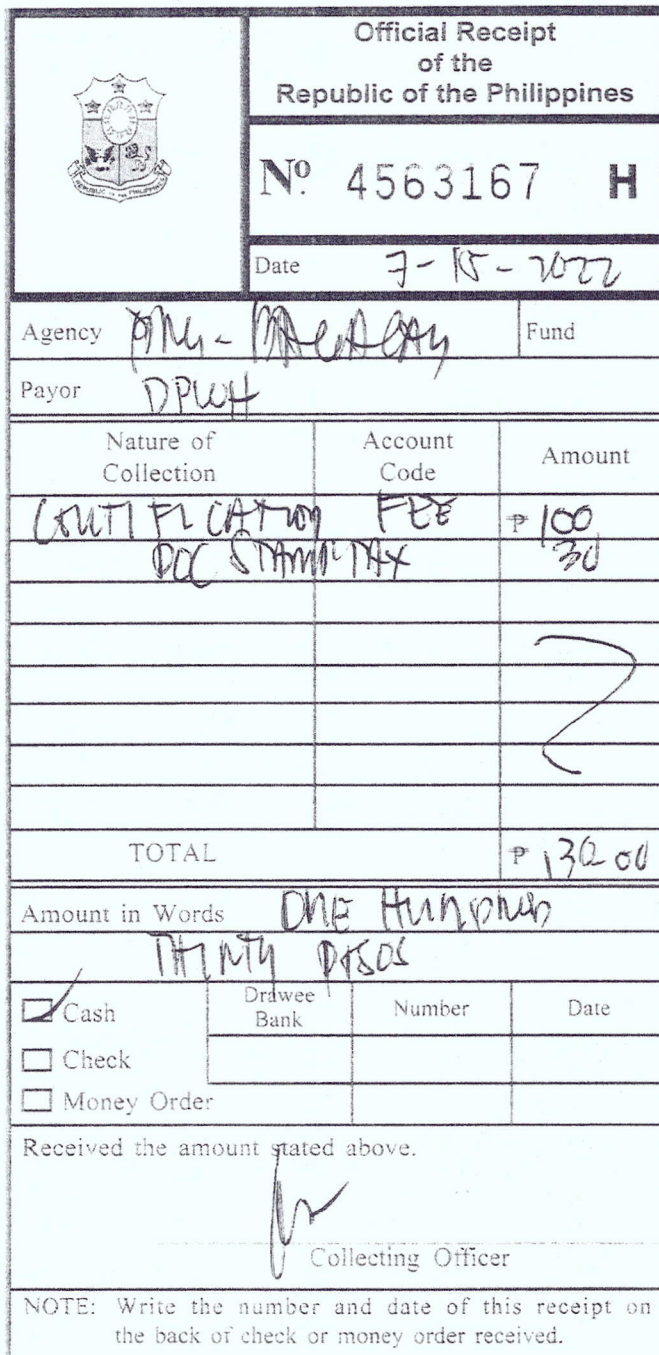 Official Receipt
of the
Republic of the Philippines
REPUBLIC OF THE PHILIPPINES
Nº 4563167 H
Date 7-15-2022
Agency
Fund
Payor DPWH
Nature of Collection
Account Code
Amount
CERTIFICATION FEE ₱ 100
DOC STAMP TAX 30
TOTAL ₱ 130.00
Amount in Words ONE HUNDRED
THIRTY PESOS
Cash
Drawee Bank
Number
Date
Check
Money Order
Received the amount stated above.
Collecting Officer
NOTE: Write the number and date of this receipt on
the back of check or money order received.